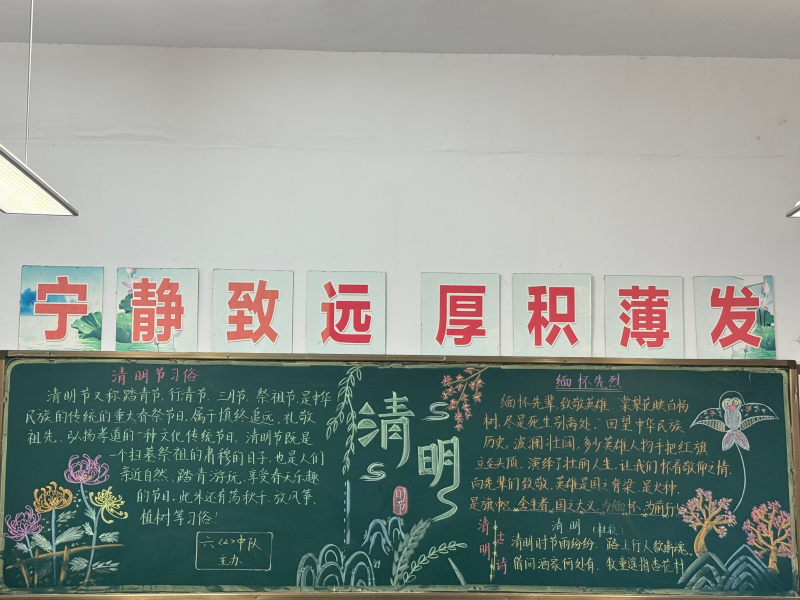 宁静致远 厚积薄发
清明节习俗
清明节又称踏青节、行清节、三月节、祭祖节,是中华
民族的传统的重大春祭节日,属于慎终追远、礼敬
祖先、弘扬孝道的一种文化传统节日。清明节既是
一个扫墓祭祖的肃穆的日子,也是人们
亲近自然、踏青游玩、享受春天乐趣
的节日,此外还有荡秋千、放风筝、
植树等习俗!
六(2)中队
主办
清明
时节
缅怀先烈
缅怀先辈,致敬英雄,棠梨花映白杨
树,尽是死生别离处,回望中华民族
历史,波澜壮阔,多少英雄人物手把红旗
立在头顶,演绎了壮丽人生,让我们怀着敬仰之情,
向先辈们致敬,英雄是国之脊梁,是火种,
是旗帜,念生者,国之大义,为缅怀,为前行
清明古诗
清明(杜牧)
清明时节雨纷纷,路上行人欲断魂,
借问酒家何处有,牧童遥指杏花村